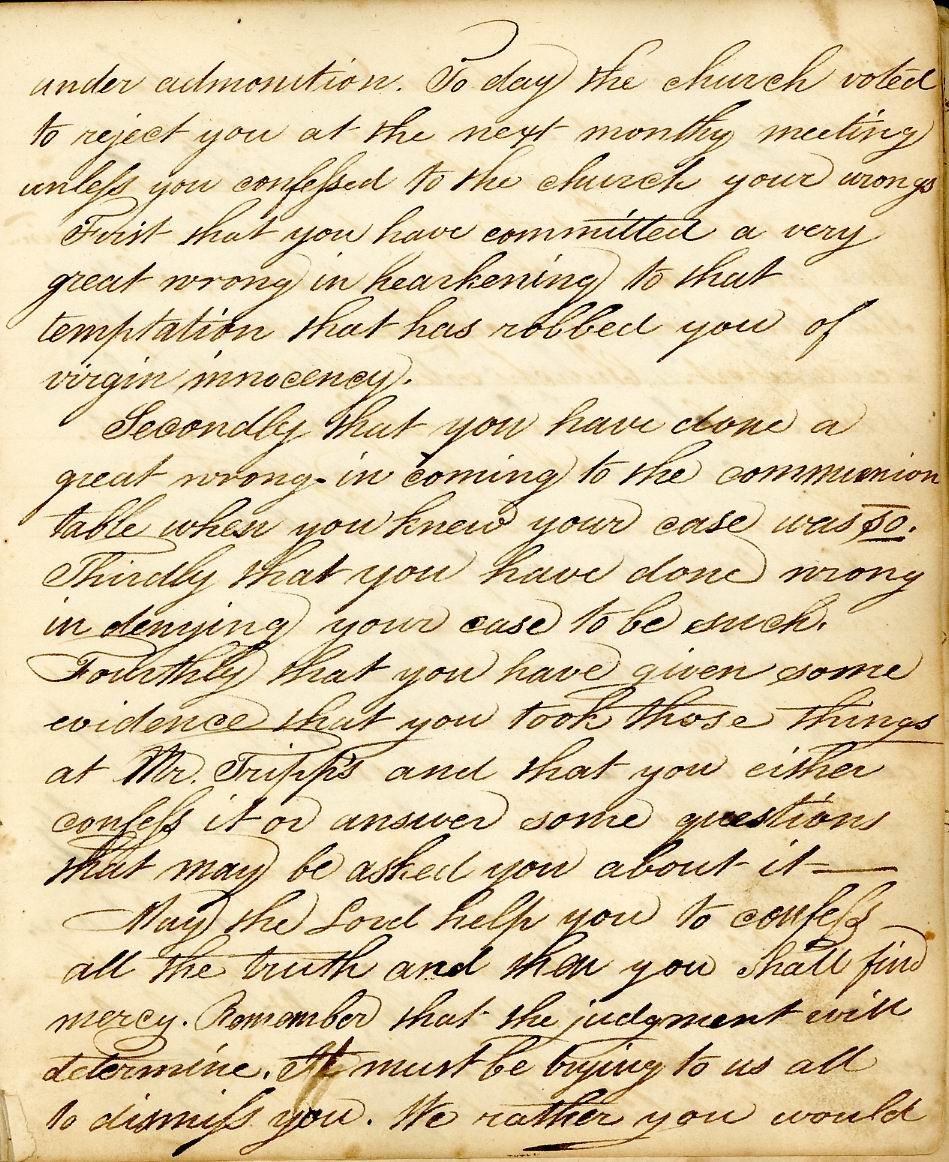 under admonition. To day the church voted
to reject you at the next monthy meeting
unless you confessed to the church your wrongs
First that you have committed a very
great wrong in hearkening to that
temptation that has robbed you of
virgin innocency.
Secondly that you have done a
great wrong in coming to the communion
table when you knew your case was so.
Thirdly that you have done wrong
in denying your case to be such.
Fourthly that you have given some
evidence that you took those things
at Mr. Tripp's and that you either
confess it or answer some questions
that may be asked you about it —
May the Lord help you to confess
all the truth and then you shall find
mercy. Remember that the judgment will
determine. It must be trying to us all
to dismiss you. We rather you would